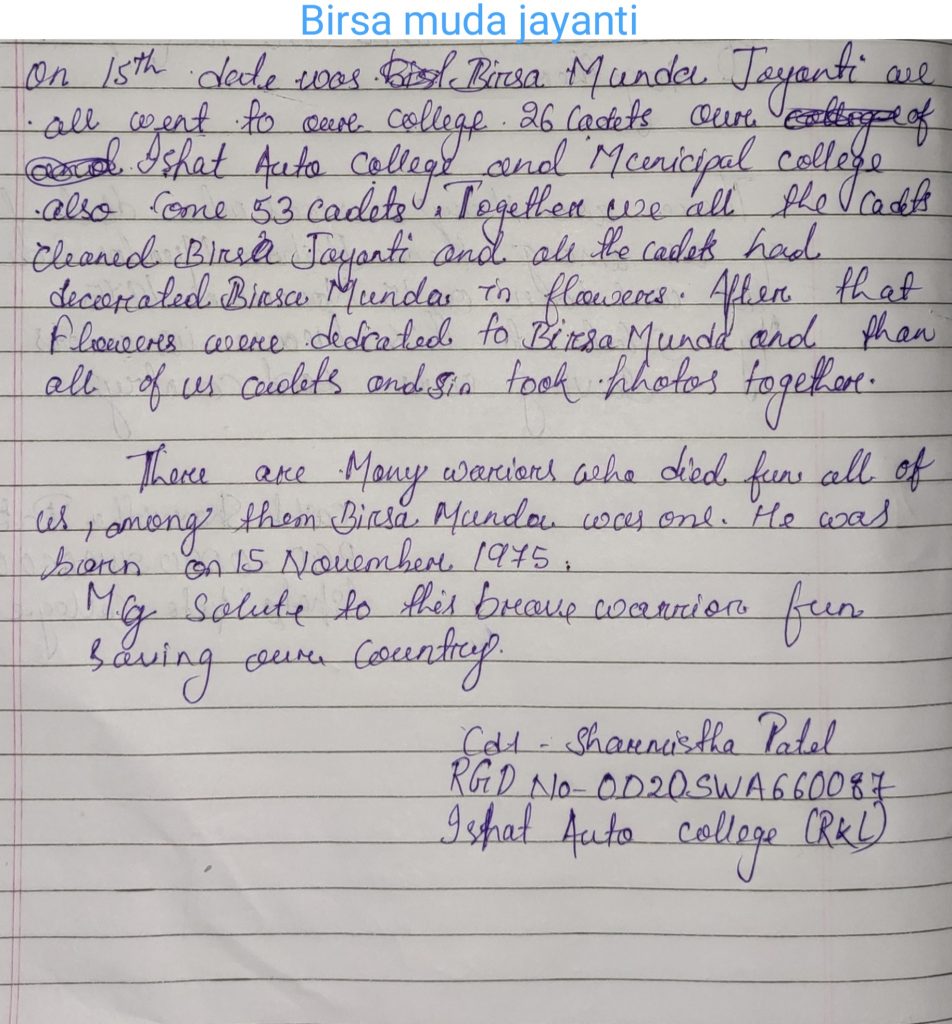 Birsa muda jayanti
On 15th date was Birsa Munda Jayanti we
all went to oure college. 26 Cadets oure of
Ishat Auto College and Municipal college
also Come 53 cadets. Together we all the Cadets
Cleaned Birsa Jayanti and all the cadets had
decorated Birsa Munda in flowers. After that
flowers were dedicated to Birsa Munda and than
all of us cadets and sir took photos together.
There are Many warriors who died fur all of
us, among them Birsa Munda was one. He was
born on 15 November 1975.
My Solute to this breave warrior fur
saving oure Country.
Cdt - Sharmistha Patel
RGD No- OD20SWA660087
Ispat Auto college (RKL)